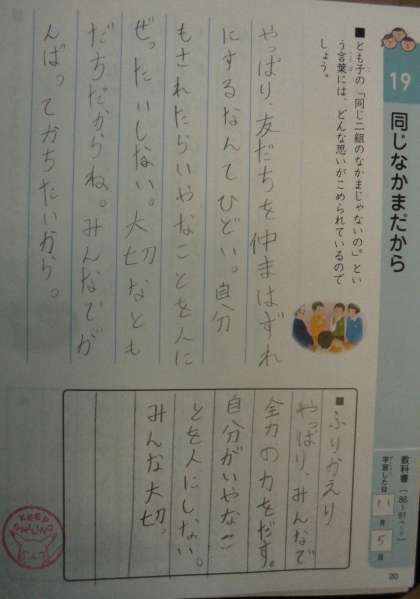 19
同じなかまだから
教科書(86~91ページ)
学習した日
11月5日
■とも子の「同じ二組のなかまじゃないの。」とい
う言葉には、どんな思いがこめられているので
しょう。
やっぱり、友だちを仲まはずれ
にするなんてひどい。自分
もされたらいやなことを人に
ぜったいしない。大切なとも
だちだからね。みんなでが
んばってかちたいから。
■ふりかえり
やっぱり、みんなで
全力の力をだす。
自分がいやなこ
とを人にしない。
みんな大切。
20